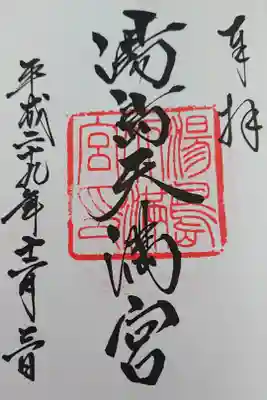 奉拝
湯島天満宮
湯島天満宮印
平成二十九年十二月三日